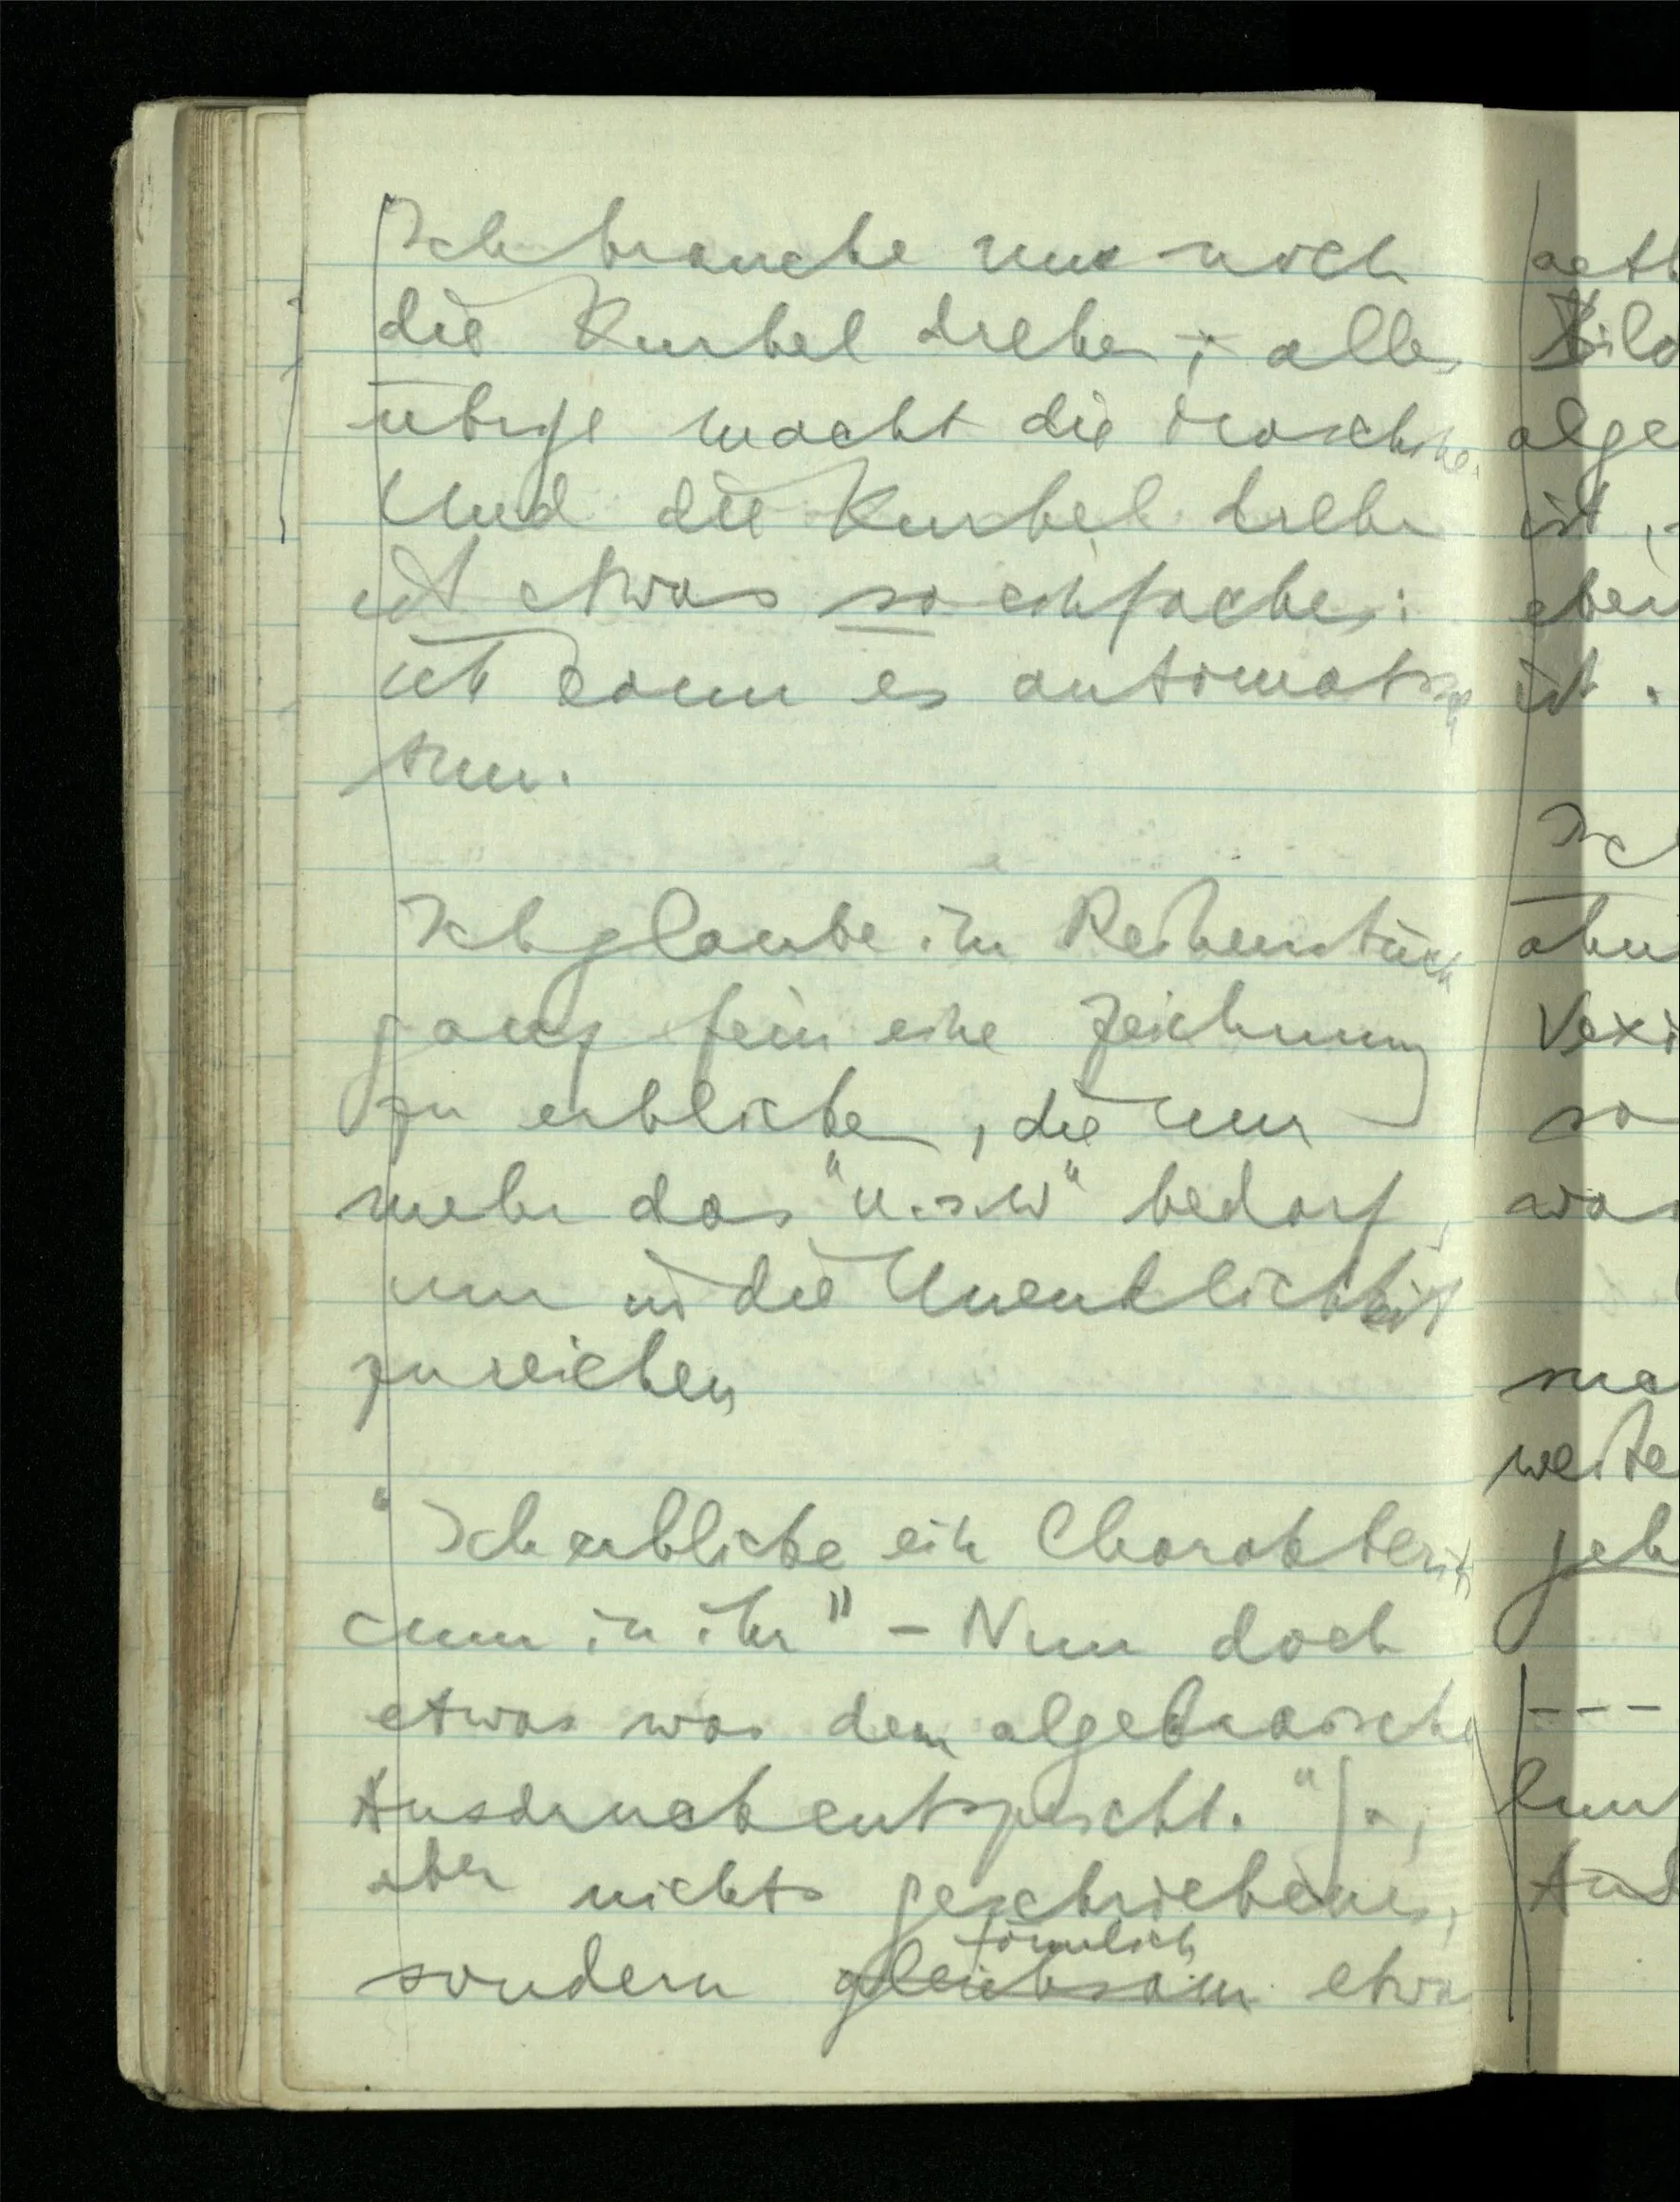 Ich brauche nur noch
die Kurbel drehen; alles
übrige macht die Maschine.
Und die Kurbel drehen
ist etwas so einfaches:
ich kann es automatisch
tun.
Ich glaube im Reihenstück
ganz fein eine Zeichnung
zu erblicken, die nur
mehr das "u.s.w" bedarf,
um in die Unendlichkeit
zu reichen
"Ich erblicke ein Charakteristi
cum in ihr" – Nun doch
etwas was dem algebraischen
Ausdruck entspricht. "Ja,
aber nichts geschriebenes,
förmlich
sondern gleichsam etwas
aeth
Bild
alge
ist,
eben
ist.
Ich
ohn
Vexi
so
was
weite
geh
---